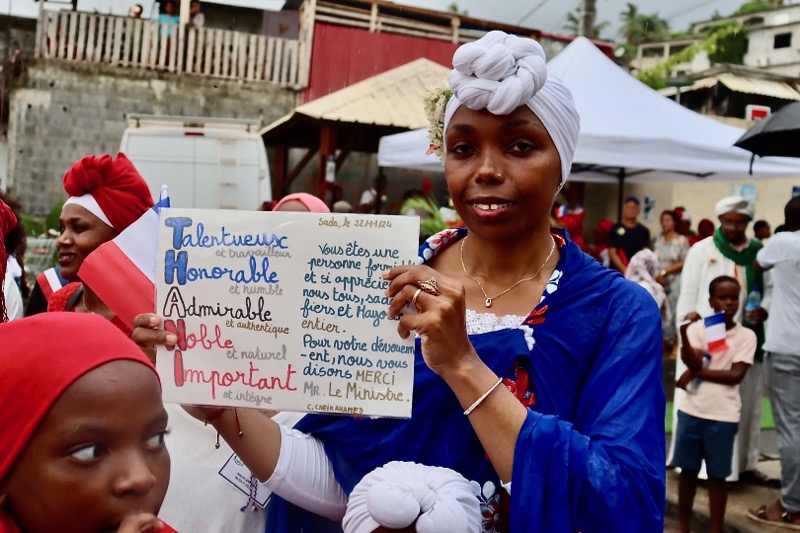 Sada, le 22-11-24
Talentueux
et travailleur
Honorable
et humble
Admirable
et authentique
Noble
et naturel
Important
et intègre
Vous êtes une
personne formi
et si appréciée
nous tous, sa
fiers et Mayo
entier.
Pour votre dévouem
-ent, nous vous
disons MERCI
Mr. Le Ministre.
C. CHEIK AHAMED